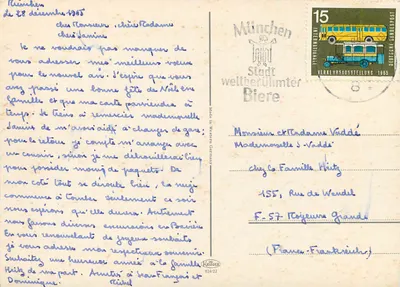 München
le 28 décembre 1965
cher Monsieur, chère Madame
chère Janine
Je ne voudrais pas manquer de
vous adresser mes meilleurs vœux
pour le nouvel an. J'espère que vous
avez passé une bonne fête de Noël en
famille et que ma carte parviendra à
temps. Je tiens à remercier mademoiselle
Janine de m'avoir aidé à changer de gare;
pour le retour j'ai compté m'arranger avec
un cousin, sinon je me débrouillerai bien
pour posséder moins de paquets. De
mon coté tout se déroule bien, la neige
commence à tomber seulement ce soir
nous espérons qu'elle durera. Autrement
nous faisons diverses excursions en Bavière
En vous renouvelant de joyeux souhaits
je vous adresse mon respectueux souvenir.
Souhaitez une heureuse année à la famille
Hütz de ma part. Amitiés à Jean-François et
Dominique.
Michel
München
Stadt
weltberühmter
Biere
15
1965
Monsieur et Madame Veddé
Mademoiselle J. Veddé
chez la Famille Hütz
155, Rue de Wendel
F. 57 Hayeurs Grande
(France-Frankreich)